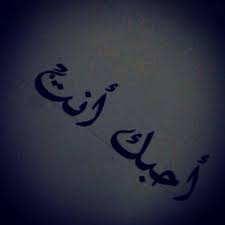 أحبك أنت